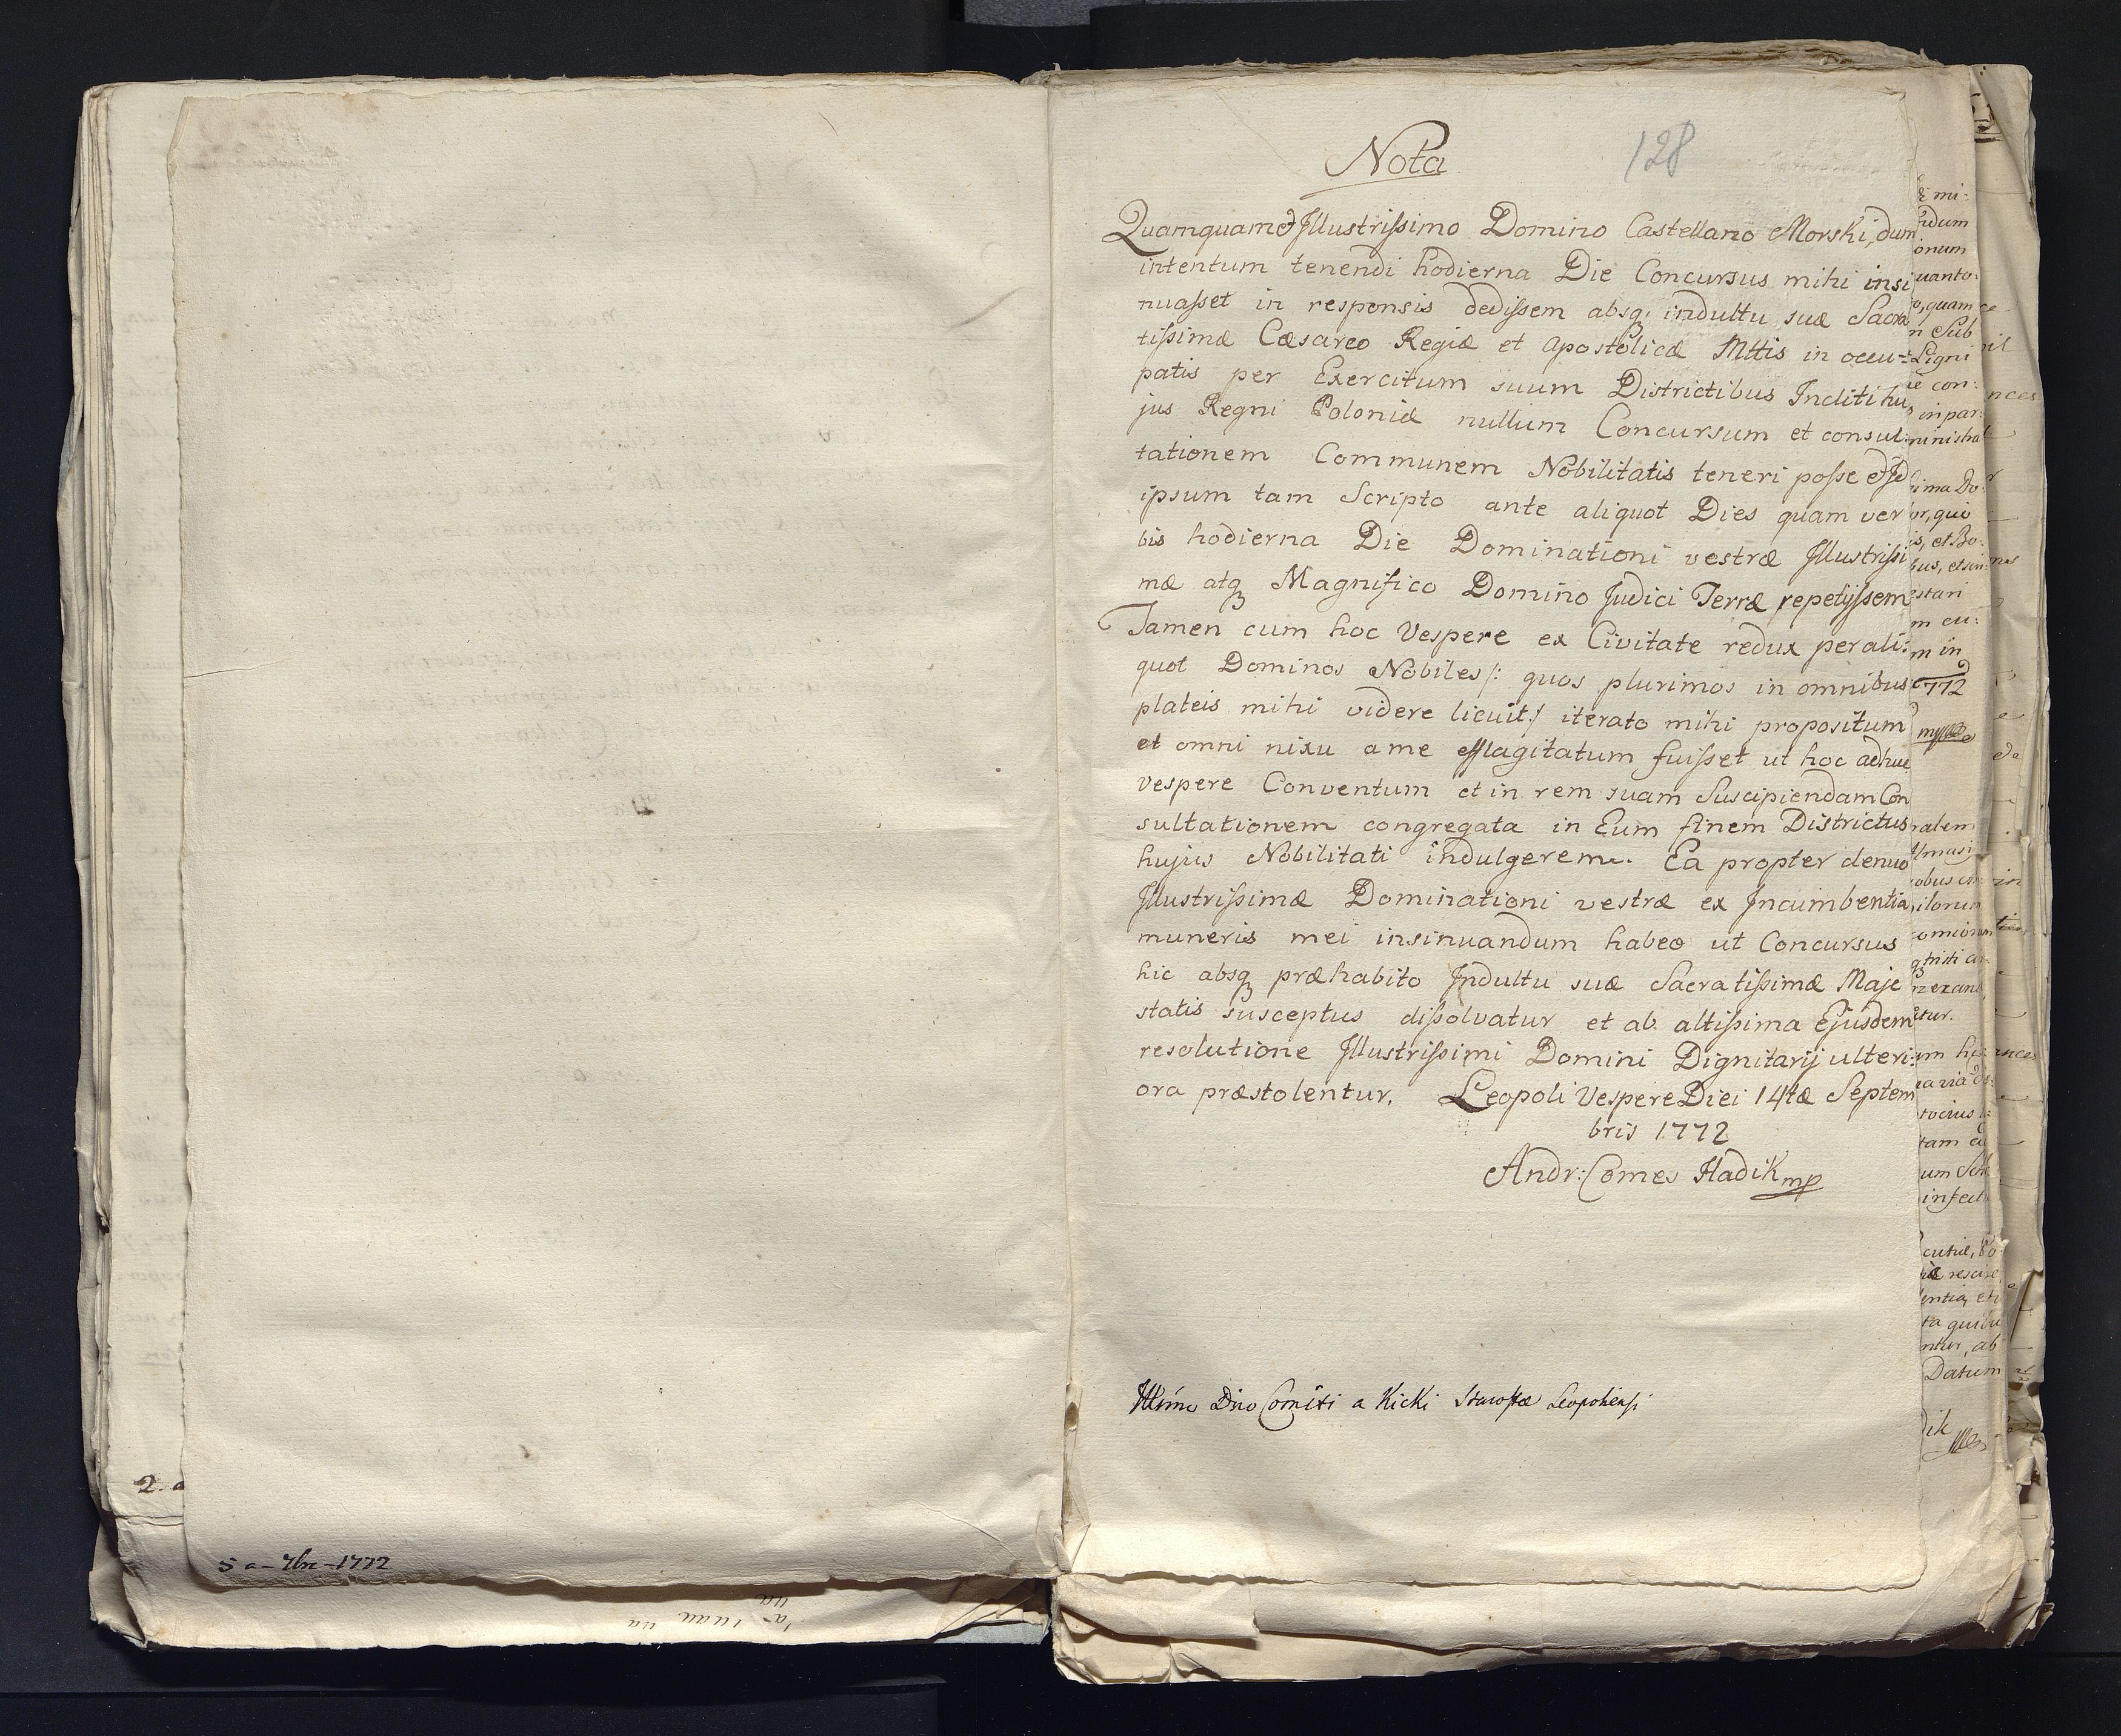 2.
5 a - 7bre - 1772
Nota
128
Quamquam et Illustrissimo Domino Castellano Morski, dum
intentum tenendi hodierna Die Concursus mihi insi
nuasset in responsis dedissem absq; indultu suæ Sacra
tissimæ Cæsareo Regiæ et Apostolicæ Mttis in occu=
patis per Exercitum suum Districtibus Incliti hu
jus Regni Poloniæ nullum Concursum et consul:
tationem Communem Nobilitatis teneri posse et Id
ipsum tam Scripto ante aliquot Dies quam ver
bis hodierna Die Dominationi vestræ Illustrissi
mæ atq Magnifico Domino Judici Terræ repetyssem
Tamen cum hoc Vespere ex Civitate redux per ali:
quot Dominos Nobiles /: quos plurimos in omnibus
plateis mihi videre licuit :/ iterato mihi propositum
et omni nixu a me efflagitatum fuisset ut hoc adhuc
vespere Conventum et in rem suam Suscipiendam Con
sultationem congregata in Eum finem Districtus
hujus Nobilitati indulgerem. Ea propter denuo
Illustrissimæ Dominationi vestræ ex Incumbentia
muneris mei insinuandum habeo ut Concursus
hic absq præhabito Indultu suæ Sacratissimæ Maje
statis susceptus dissolvatur et ab altissima Ejusdem
resolutione Illustrissimi Domini Dignitarij ulteri:
ora præstolentur. Leopoli Vespere Diei 14tæ Septem
bris 1772
Andr: Comes Hadik mp
Illsimo Dno Comiti a Kicki Starostæ Leopoliensi